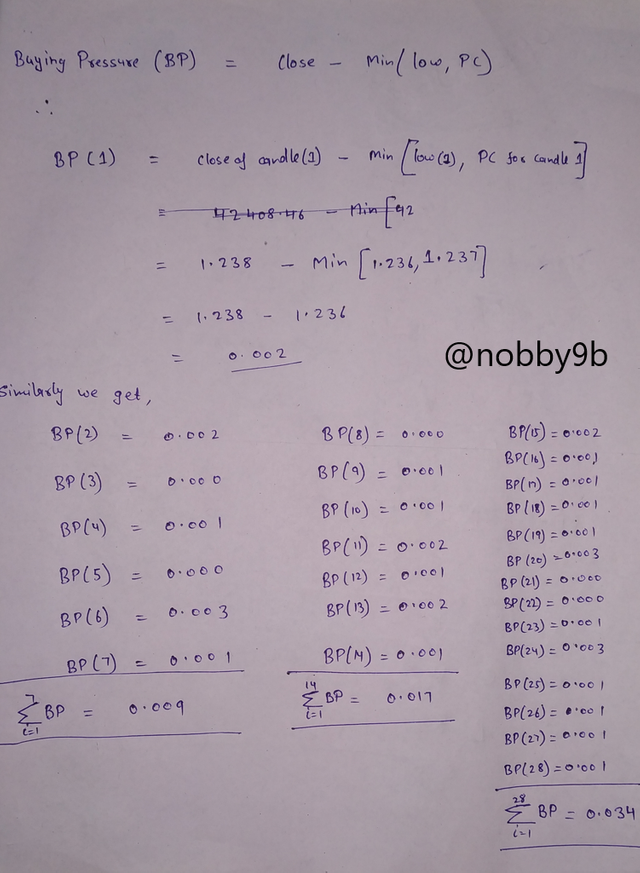 Buying Pressure (BP) = Close - Min(low, PC)
∴
BP(1) = Close of candle(1) - Min [low(1), PC for candle 1]
= 42408.46 - Min [42
= 1.238 - Min [1.236, 1.237]
= 1.238 - 1.236
= 0.002
@nobby9b
Similarly we get,
BP(2) = 0.002
BP(3) = 0.000
BP(4) = 0.001
BP(5) = 0.000
BP(6) = 0.003
BP(7) = 0.001
7
∑ BP = 0.009
i=1
BP(8) = 0.000
BP(9) = 0.001
BP(10) = 0.001
BP(11) = 0.002
BP(12) = 0.001
BP(13) = 0.002
BP(14) = 0.001
14
∑ BP = 0.017
i=1
BP(15) = 0.002
BP(16) = 0.001
BP(17) = 0.001
BP(18) = 0.001
BP(19) = 0.001
BP(20) = 0.003
BP(21) = 0.000
BP(22) = 0.000
BP(23) = 0.001
BP(24) = 0.003
BP(25) = 0.001
BP(26) = 0.001
BP(27) = 0.001
BP(28) = 0.001
28
∑ BP = 0.034
i=1